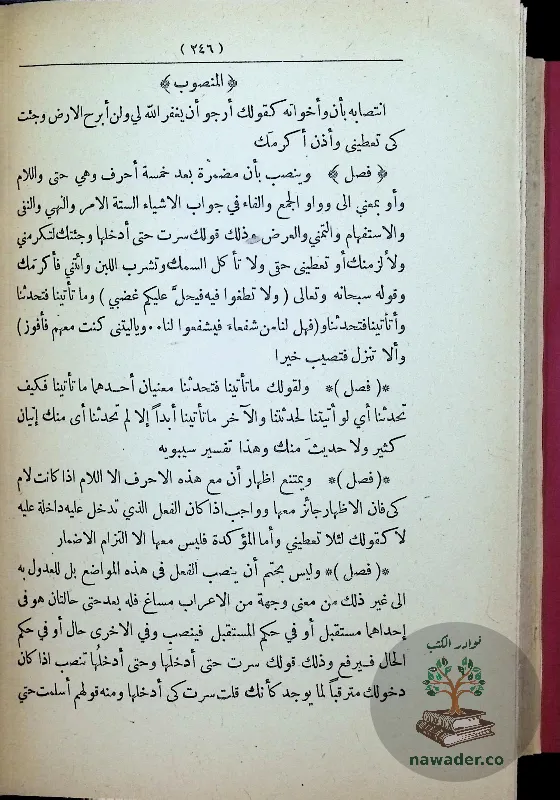 ( ٢٤٦ )
﴿ المنصوب ﴾
انتصابه بأن وأخواته كقولك أرجو أن يغفر الله لي ولن أبرح الارض وجئت
كى تعطينى وأذن أكرمك
﴿ فصل ﴾ وينصب بأن مضمرة بعد خمسة أحرف وهي حتى واللام
وأو بمعنى الى وواو الجمع والفاء في جواب الاشياء الستة الامر والنهي والنفى
والاستفهام والتمني والعرض وذلك قولك سرت حتى أدخلها وجئتك لتكرمني
ولألزمنك أو تعطينى حقى ولا تأكل السمك وتشرب اللبن وائتني فأكرمك
وقوله سبحانه وتعالى ( ولا تطغوا فيه فيحل عليكم غضبي ) وما تأتينا فتحدثنا
وأتأتينا فتحدثنا و(فهل لنا من شفعاء فيشفعوا لنا ٠٠ وياليتنى كنت معهم فأفوز)
وألا تنزل فتصيب خيرا
*( فصل )* ولقولك ماتأتينا فتحدثنا معنيان أحدهما ما تأتينا فكيف
تحدثنا أي لو أتيتنا لحدثتنا والآخر ماتأتينا أبداً إلا لم تحدثنا أى منك إتيان
كثير ولا حديث منك وهذا تفسير سيبويه
*( فصل )* ويمتنع اظهار أن مع هذه الاحرف الا اللام اذا كانت لام
كى فان الاظهار جائز معها وواجب اذا كان الفعل الذي تدخل عليه داخلة عليه
لا كقولك لئلا تعطيني وأما المؤكدة فليس معها الا التزام الاضمار
*( فصل )* وليس بحتم أن ينصب الفعل في هذه المواضع بل للعدول به
الى غير ذلك من معنى وجهة من الاعراب مساغ فله بعد حتى حالتان هو فى
إحداهما مستقبل أو في حكم المستقبل فينصب وفي الاخرى حال أو في حكم
الحال فيرفع وذلك قولك سرت حتى أدخلها وحتى أدخلها تنصب اذا كان
دخولك مترقباً لما يوجد كأنك قلت سرت كى أدخلها ومنه قولهم أسلمت حتي
نوادر الكتب
nawader.co